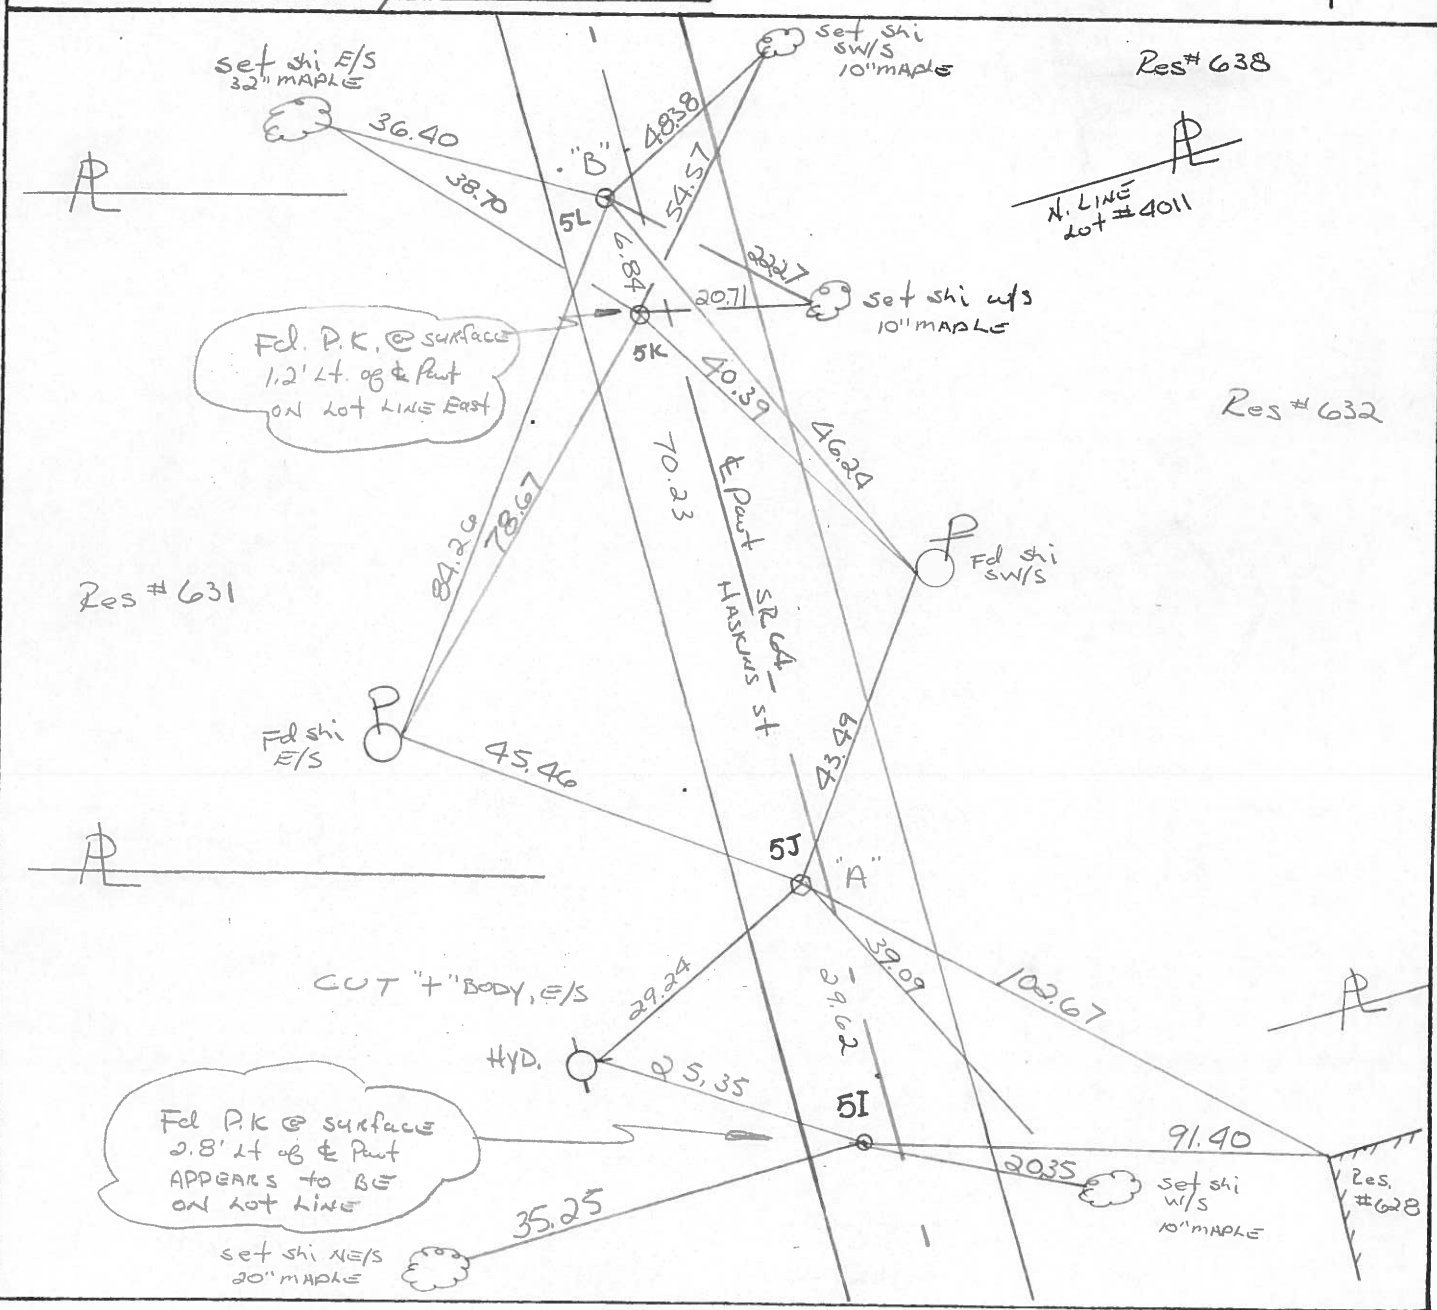 set shi E/S
32" MAPLE
set shi
SW/S
10" MAPLE
Res # 638
36.40
48.38
"B"
38.70
54.57
5L
PL
PL
N. LINE
Lot # 4011
6.84
22.27
20.71
set shi w/s
10" MAPLE
Fd. P.K. @ surface
1.2' Lt. of ℄ Pavt
ON Lot LINE East
5K
40.39
46.24
Res # 632
70.23
℄ Pavt SR 64 –
HASKINS st.
84.26
78.67
P
Fd shi
SW/S
Res # 631
P
Fd shi
E/S
45.46
43.49
5J
"A"
PL
CUT "+" BODY, E/S
29.24
39.09
29.62
102.67
PL
HYD.
25.35
5I
Fd P.K @ surface
2.8' Lt of ℄ Pavt
APPEARS to BE
ON Lot LINE
91.40
20.35
set shi
W/S
10" MAPLE
Res.
#628
35.25
set shi NE/S
20" MAPLE